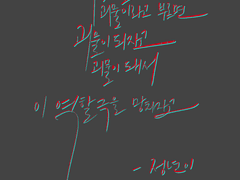 괴물이라고 부르면
괴물이 되자고
괴물이 돼서
이 역할극을 망치자고
- 정년이